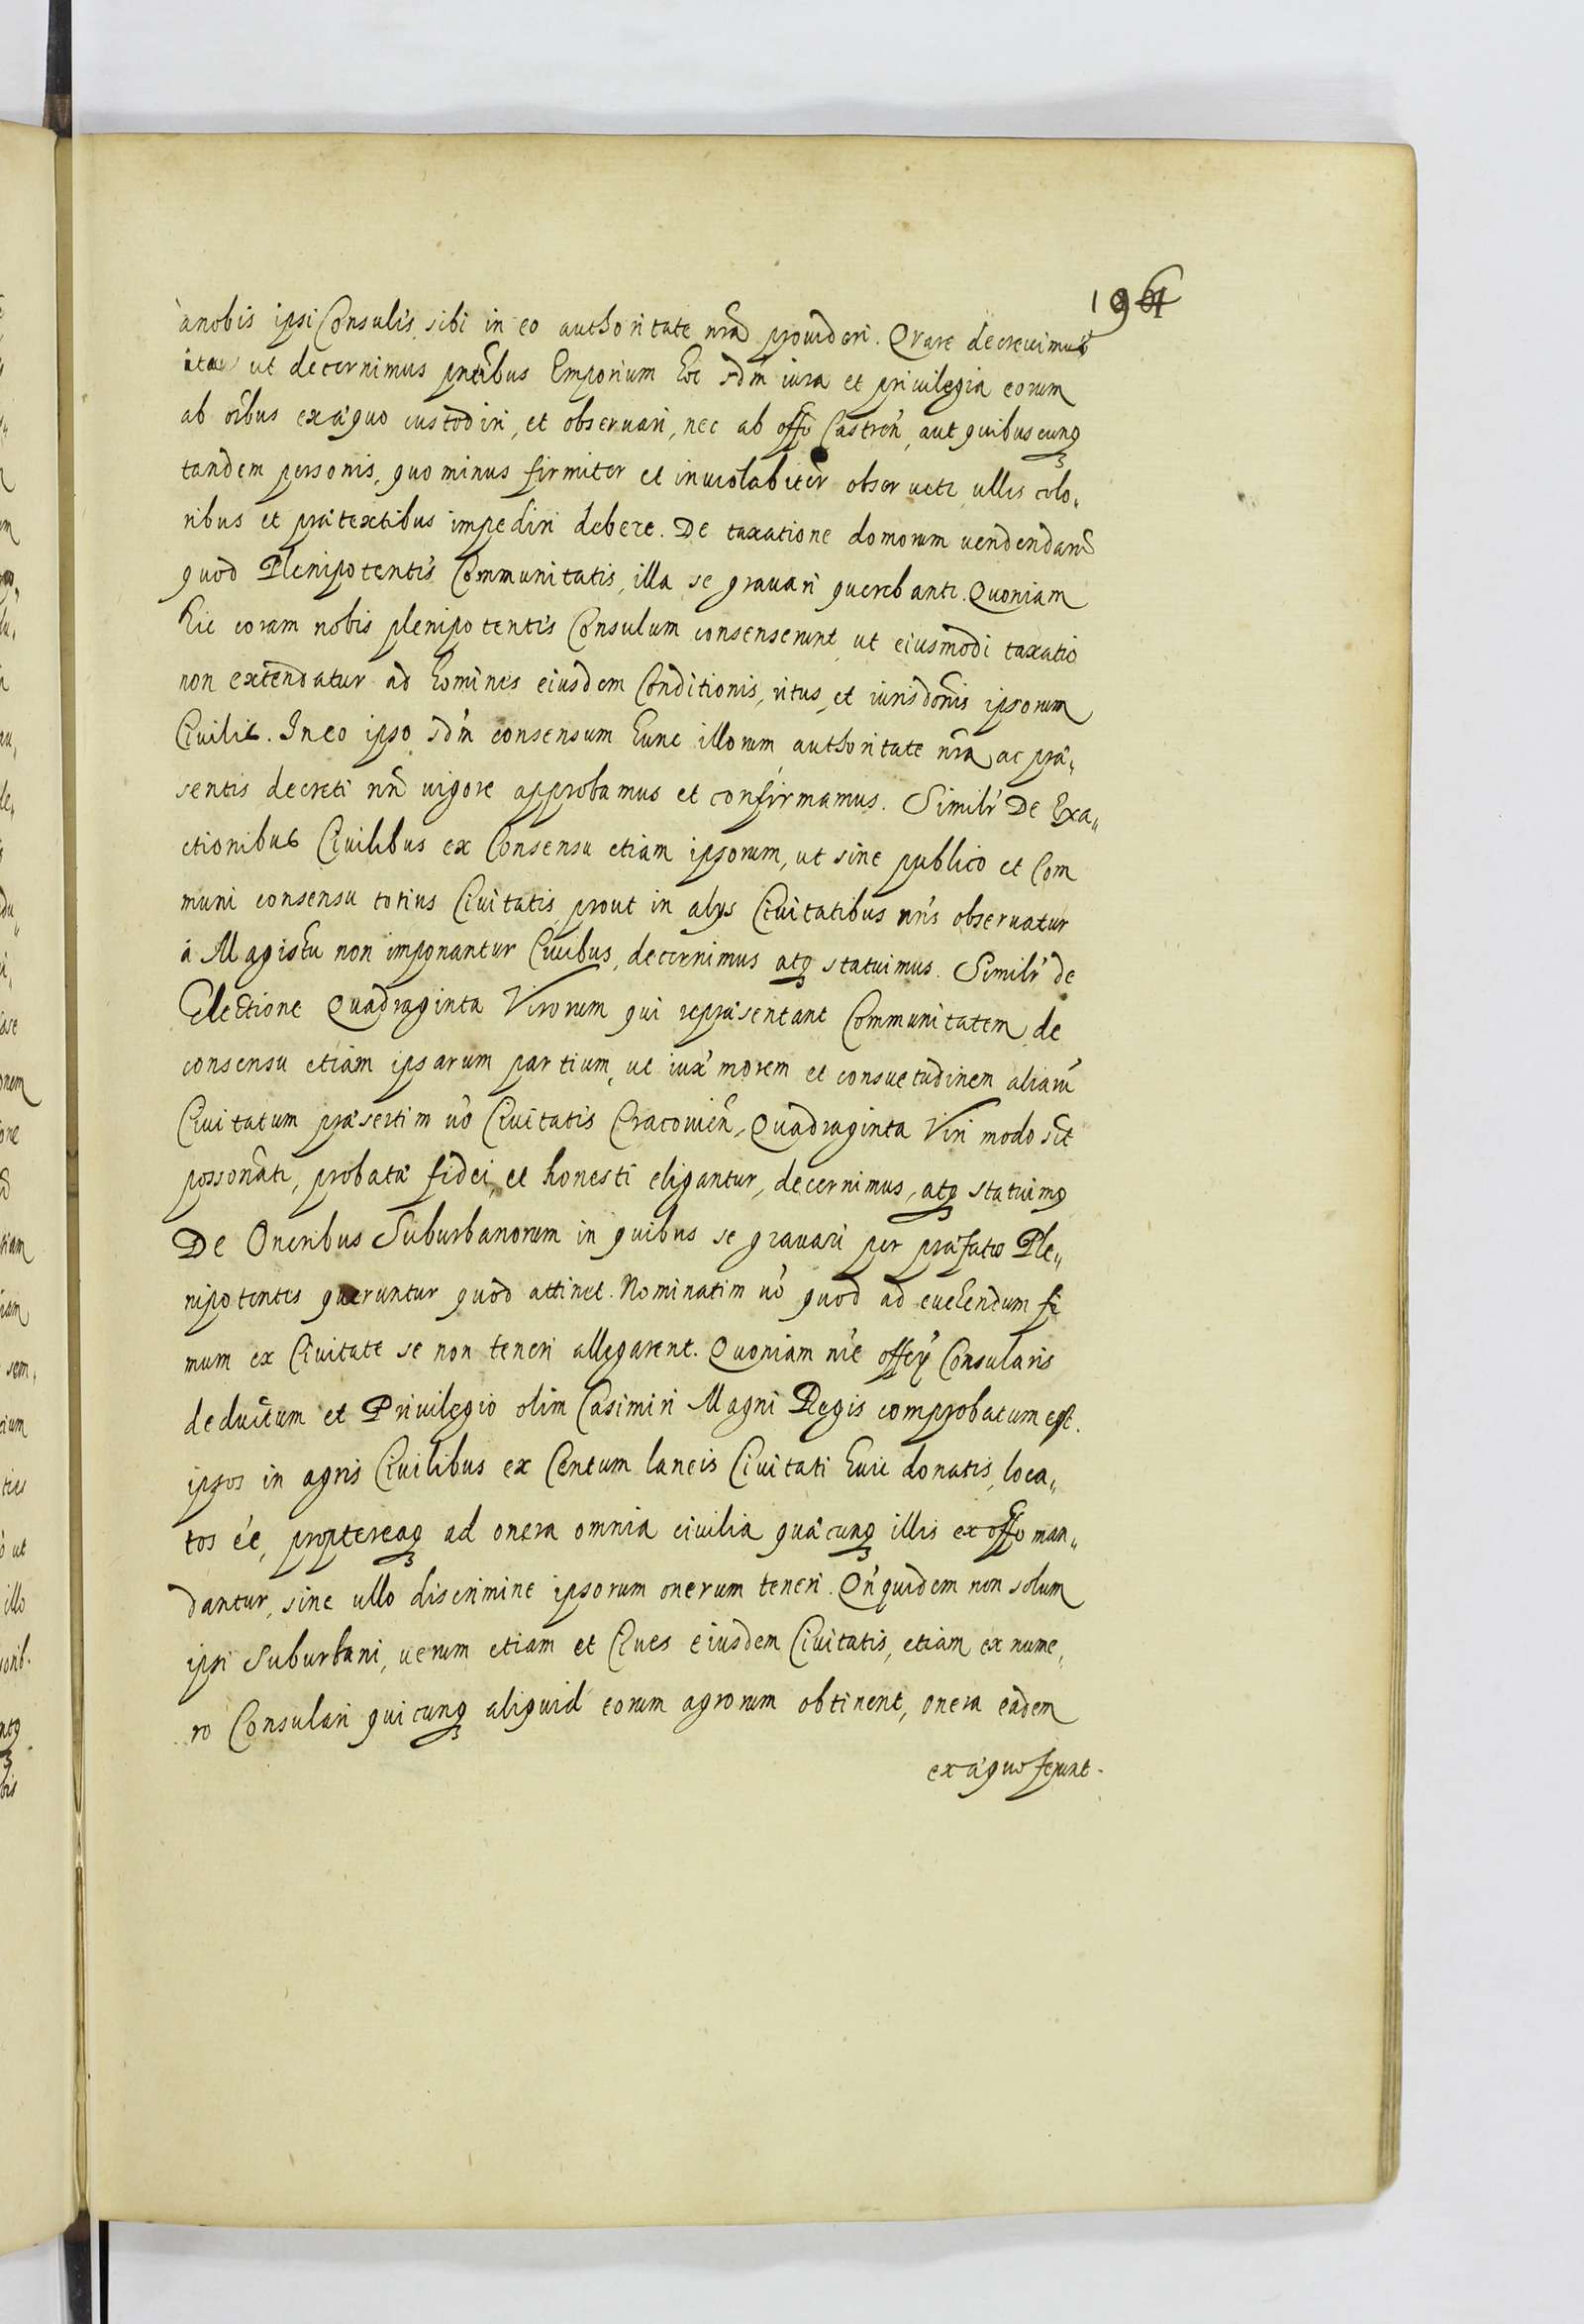 196
à nobis ipsi Consules sibi in eo authoritate nr̃a prouideri. Quare decreuimus
ut decernimus pñtibus Emporium hoc sdm̃ iura et priuilegia eorum
ab oĩbus ex æquo custodiri, et obseruari, nec ab offo Castreñ, aut quibuscunq
tandem personis, quo minus firmiter et inuiolabiter obseruetr ullis colo„
ribus et prætextibus impediri debere. De taxatione domorum uendendarũ
quod Plenipotentes Communitatis, illa se grauari querebantr. Quoniam
hic coram nobis plenipotentes Consulum consenserunt ut eiusmodi taxatio
non extendatur ad homines eiusdem Conditionis, ritus, et iurisdõnis ipsorum
Ciuilis. In eo ipso sdm̃ consensum hunc illorum authoritate nr̃a, ac præ„
sentis decreti nr̃i uigore approbamus et confirmamus. Similr̃ De Exa„
ctionibus Ciuilibus ex Consensu etiam ipsorum, ut sine publico et Com
muni consensu totius Ciuitatis prout in alys Ciuitatibus nr̃is obseruatur
à Magistu non imponantur Ciuibus, decernimus atq statuimus. Similr̃ de
Electione Quadraginta Virorum qui repræsentant Communitatem de
consensu etiam ipsarum partium, ut iux̃ morem et consuetudinem aliarũ
Ciuitatum præsertim uõ Ciuitatis Cracouieñ, Quadraginta Viri modo sĩt
possonati, probatæ fidei, et honesti eligantur, decernimus, atq statuimq
De Oneribus Suburbanorum in quibus se grauari per præfatos Ple„
nipotentes queruntur quod attinet. Nominatim uõ quod ad euehendum fi
mum ex Ciuitate se non teneri allegarent. Quoniam nr̃e offcÿ Consularis
deductum et Priuilegio olim Casimiri Magni Regis comprobatum est.
ipsos in agris Ciuilibus ex Centum laneis Ciuitati huic donatis, loca„
tos ẽe, proptereaq ad onera omnia ciuilia quæcunq illis ex offo man„
dantur, sine ullo discrimine ipsorum onerum teneri. Qñquidem non solum
ipsi Suburbani, uerum etiam et Ciues eiusdem Ciuitatis, etiam ex nume„
ro Consulari quicunq aliquid eorum agrorum obtinent, onera eadem
ex æquo ferunt.